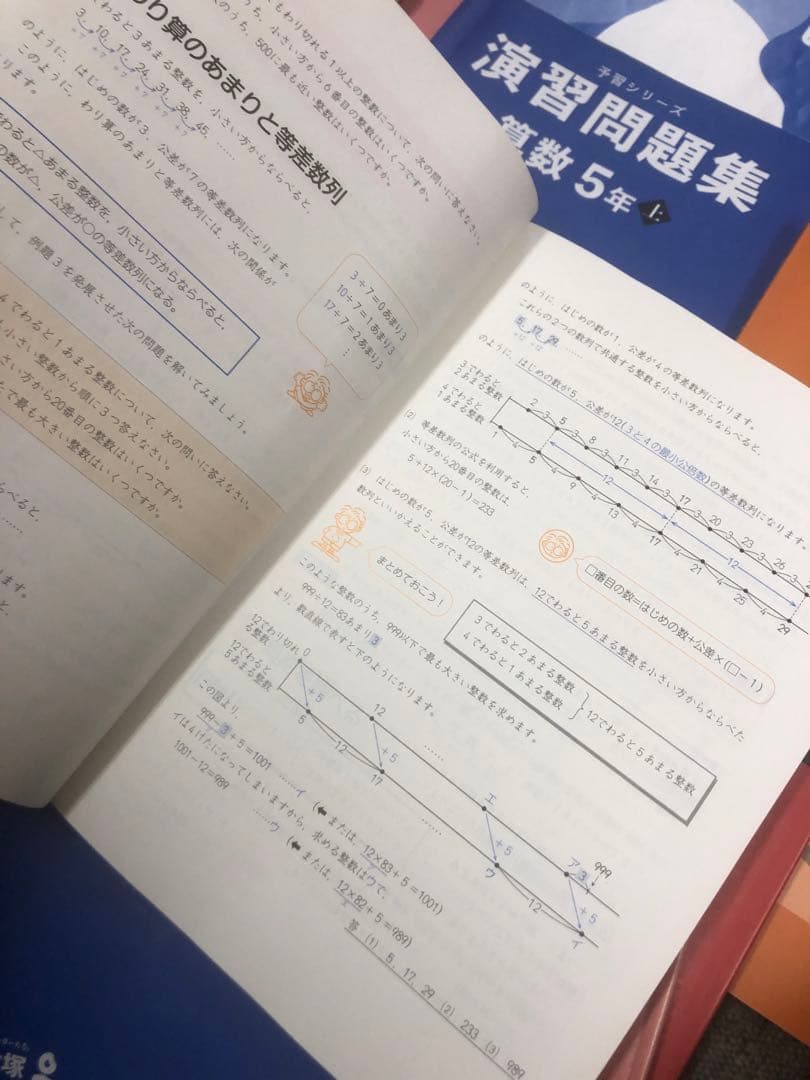 もわり切れる1以上の整数について、次の問いに答えなさい。
うち、小さい方から6番目の整数はいくつですか。
のうち、500に最も近い整数はいくつですか。
り算のあまりと等差数列
でわると3あまる整数を、小さい方からならべると、
3、10、17、24、31、38、45、……
+7 +7 +7 +7 +7 +7
のように、はじめの数が3、公差が7の等差数列になります。
このように、わり算のあまりと等差数列には、次の関係が
ります。
わると△あまる整数を、小さい方からならべると、
の数が△、公差が○の等差数列になる。
3÷7=0あまり3
10÷7=1あまり3
17÷7=2あまり3
⋮
して、例題3を発展させた次の問題を解いてみましょう。
4でわると1あまる整数について、次の問いに答えなさい。
小さい整数から順に3つ答えなさい。
さい方から20番目の整数はいくつですか。
下で最も大きい整数はいくつですか。
らべると、
……
ます。
と、
予習シリーズ
演習問題集
算数5年上
のように、はじめの数が1、公差が4の等差数列になります。
これらの2つの数列で共通する整数を小さい方からならべると、
5、17、29、……
+12 +12
のように、はじめの数が5、公差が12(3と4の最小公倍数)の等差数列になります。
3でわると
2あまる整数
2 3 5 3 8 3 11 3 14 3 17 3 20 3 23 3 26 3
12 12
4でわると
1あまる整数
1 4 5 4 9 4 13 4 17 4 21 4 25 4 29
(2) 等差数列の公式を利用すると、
小さい方から20番目の整数は、
5+12×(20-1)=233
□番目の数=はじめの数+公差×(□-1)
(3) はじめの数が5、公差が12の等差数列は、12でわると5あまる整数を小さい方からならべた
数列といいかえることができます。
まとめておこう!
3でわると2あまる整数
4でわると1あまる整数
12でわると5あまる整数
このような整数のうち、999以下で最も大きい整数を求めます。
999÷12=83あまり3
より、数直線で表すと下のようになります。
12でわり切れ
る整数
0 12 …… エ ア 3 999
+5 +5 +5 +5
12でわると
5あまる整数
5 12 17 …… ウ 12 イ
この図より、
999-3+5=1001 ……イ (⬅または、12×83+5=1001)
イは4けたになってしまいますから、求める整数はウで、
1001-12=989 ……ウ (⬅または、12×82+5=989)
答 (1) 5、17、29 (2) 233 (3) 989
塚